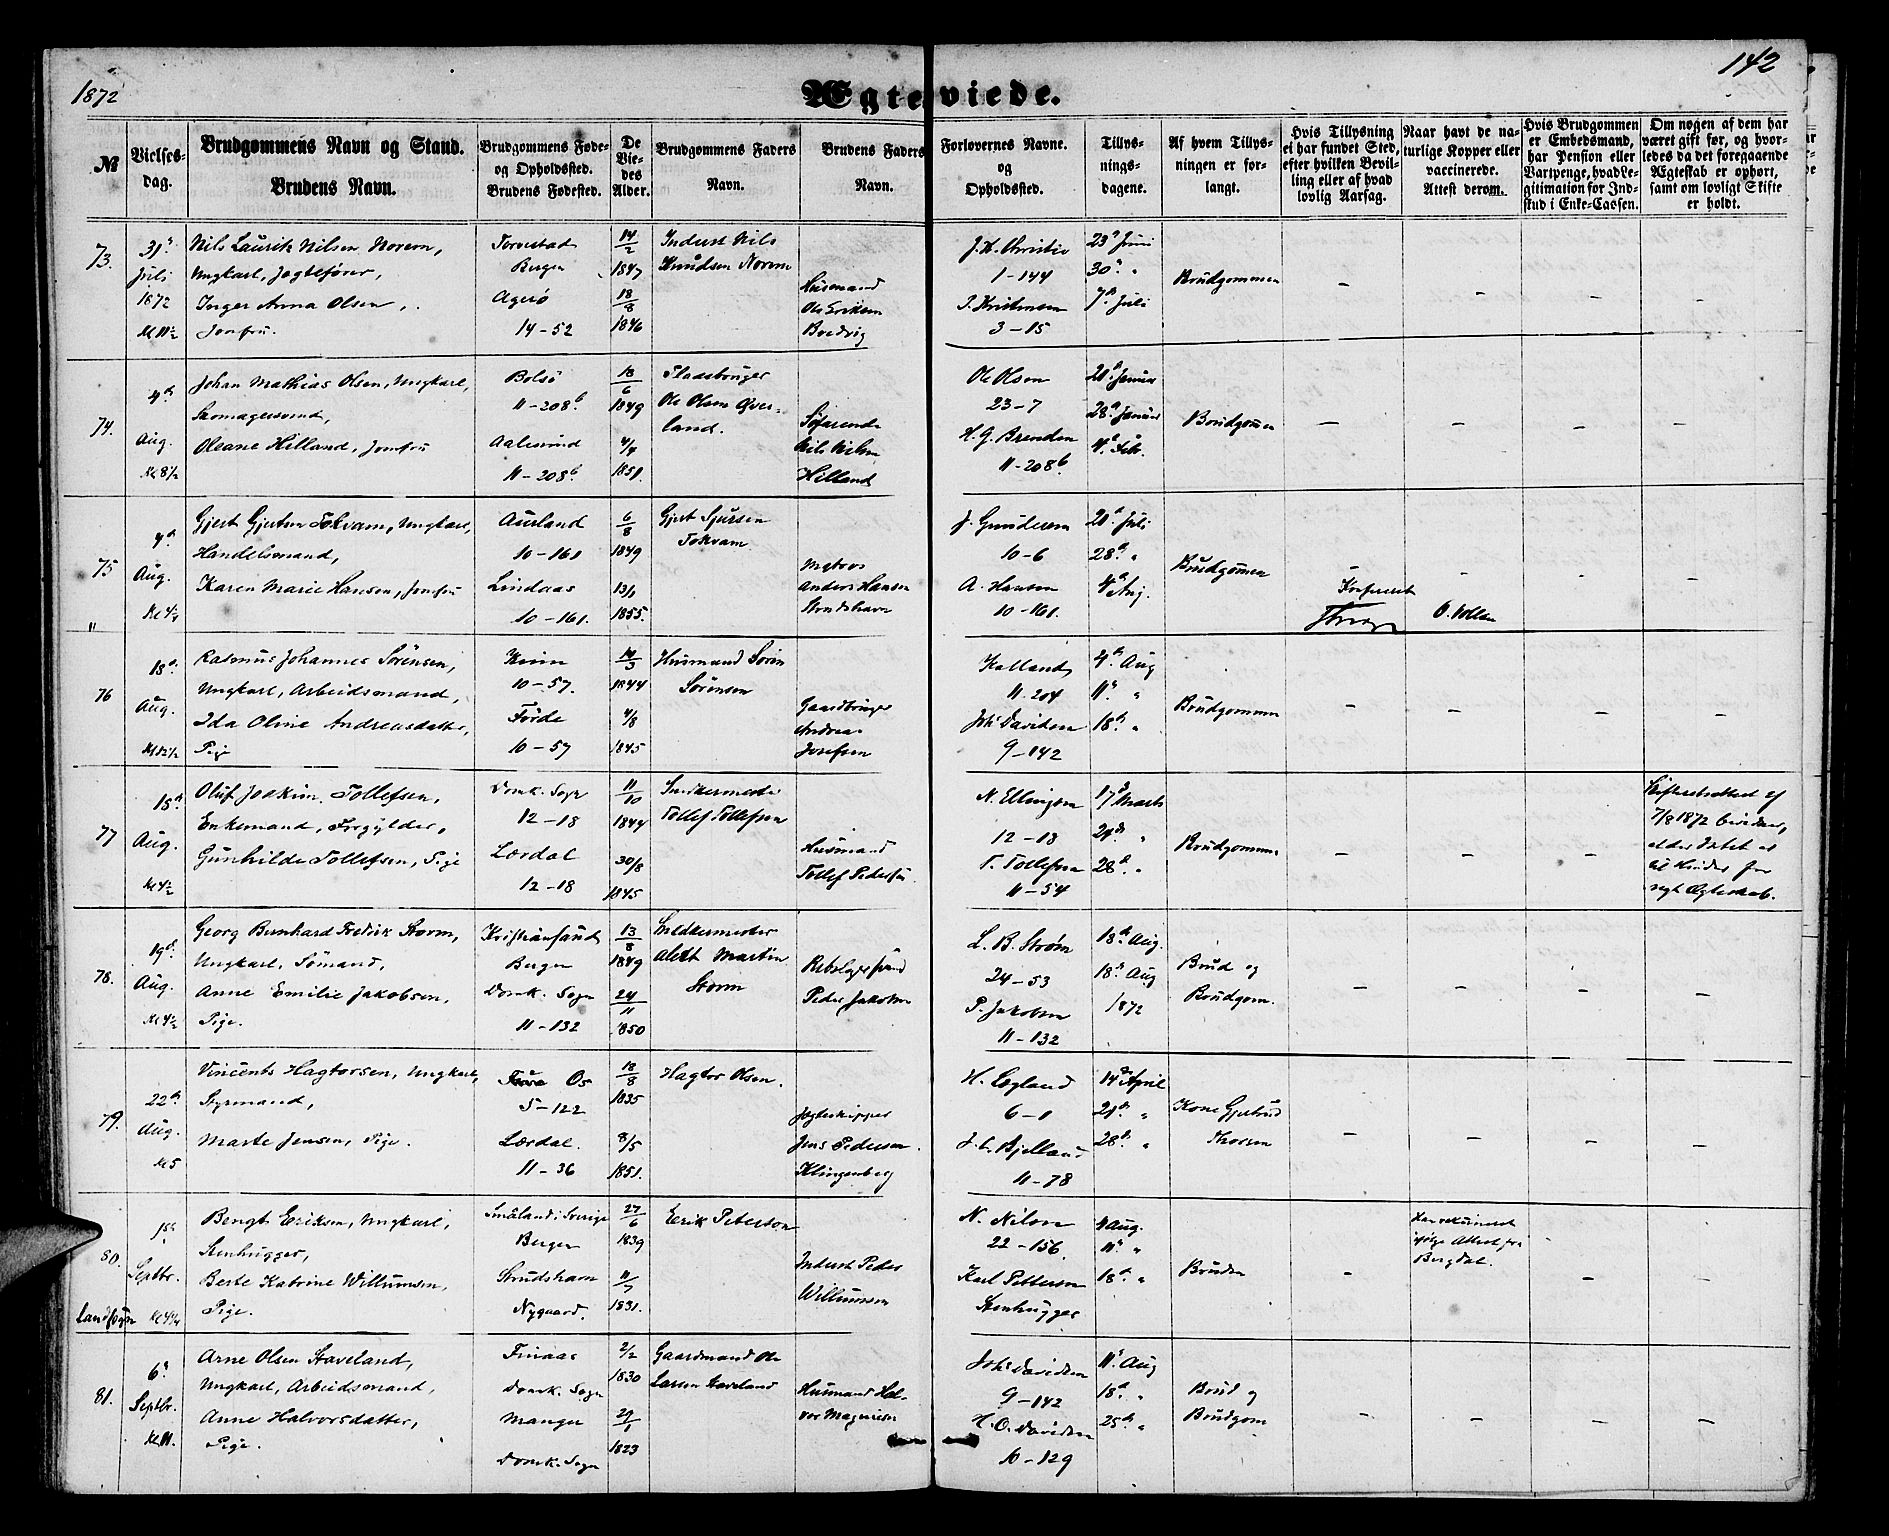 1872
142
Ægteviede.
№
Vielses-
dag.
Brudgommens Navn og Stand.
Brudens Navn.
Brudgommens Føde-
og Opholdssted.
Brudens Fødested.
De
Vie-
des
Alder.
Brudgommens Faders
Navn.
Brudens Faders
Navn.
Forlovernes Navne.
og
Opholdssted.
Tillys-
nings-
dagene.
Af hvem Tillys-
ningen er for-
langt.
Hvis Tillysning
ei har fundet Sted,
efter hvilken Bevil-
ling eller af hvad
lovlig Aarsag.
Naar havt de na-
turlige Kopper eller
vaccinerede.
Attest derom.
Hvis Brudgommen
er Embedsmand,
har Pension eller
Vartpenge, hvad Le-
gitimation for Ind-
skud i Enke-Cassen.
Om nogen af dem har
været gift før, og hvor-
ledes da det foregaaende
Ægteskab er ophørt,
samt om lovligt Skifte
er holdt.
73.
31te
Juli
1872
Kl 11½
Nils Laurik Nilsen Norem,
Ungkarl, Jegtefører,
Inger Anna Olsen,
Jomfru.
Torvestad
Bergen
Agerø
14-52
14/2
1847
18/8
1846
Inderst Nils
Knudsen Norem
Husmand
Ole Eriksen
Bredvig
J. K. Christie
1-144
I. Kristensen
3-15
23de Juni
30te "
7de Juli
Brudgommen
- - - -
74.
4de
Aug.
Kl 8½
Johan Mathias Olsen, Ungkarl,
Skomagersvend,
Oleane Hilland, Jomfru
Bolsø
11-208b.
Aalesund
11-208b.
18/6
1849
4/4
1851.
Pladsbruger
Ole Olsen Øver-
land.
Søfarende
Nils Nilsen
Hilland
Ole Olsen
23-7
H. G. Brenden
11-208b.
21de Januar
28de Januar
4de Febr.
Brudgommen
- - - -
75
4de
Aug.
Kl 4¼
"
Gjert Gjertsen Tokvam, Ungkarl,
Handelsmand,
Karen Marie Hansen, Jomfru
Aurland
10-161
Lindaas
10-161.
6/8
1849
13/1
1855.
Gjert Sjursen
Tokvam
Matros
Anders Hansen
Strudshavn
J. Gundersen
10-6
A. Hansen
10-161.
21de Juli
28de "
4de Aug.
Brudgommen
- - - -
Konfereret
O. Vollan
76
18de
Aug.
Kl 12½
Rasmus Johannes Sørensen,
Ungkarl, Arbeidsmand,
Ida Oline Andreasdatter,
Pige
Kinn
10-57.
Førde
10-57
14/3
1844
4/8
1845
Husmand Søren
Sørensen
Gaardbruger
Andreas
Josefsen
Kalland
11-204
Johs Davidsen
9-142
4de Aug
11te "
18de "
Brudgommen
- - - -
77
18de
Aug.
Kl 4½
Oluf Joakim Tollefsen,
Enkemand, Forgylder,
Gunhilde Tollefsen, Pige
Domk. Sogn
12-18
Lærdal
12-18
11/10
1844
30/8
1845
Snedkermester
Tollef Tollefsen
Husmand
Tollef Pedersen
N. Ellingsen
12-18
T. Tollefsen
11-54
17de Marts
21de "
28de "
Brudgommen
- - -
Skifteretsattest af
7/8 1872 bevidner,
at der Intet er
til Hinder for
nyt Ægteskab.
78.
19de
Aug.
Kl 4½
Georg Bernhard Fredrik Storm,
Ungkarl, Sømand,
Anne Emilie Jakobsen,
Pige.
Kristiansand
Bergen
Domk. Sogn
11-132
13/8
1849
24/11
1850
Snedkermester
Aleth Martin
Storm
Rebslagersvend
Peder Jakobsen
L. B. Strøm
24-53
P. Jakobsen
11-132
18de Aug.
18de Aug
1872
Brud og
Brudgom.
- - - -
79.
22de
Aug.
Kl 5
Vincents Hagtorsen, Ungkarl,
Styrmand,
Marte Jensen, Pige.
Os
5-122
Lærdal.
11-36
18/8
1835
8/5
1851.
Hagtor Olsen.
Jægteskipper
Jens Pedersen
Klingenberg
H. Løgland
6-1
J. C. Bjelland
11-78
14de April
21de "
28de "
Kone Gjertrud
Thorsen
- - - -
80.
Landsogn
1ste
Septbr.
Kl 4¾
Bengt Eriksen, Ungkarl,
Stenhugger,
Berte Katrine Willumsen,
Pige.
Småland i Sverige
Bergen
Strudshavn
Nygaard.
27/6
1839
11/7
1831.
Erik Peterson
Inderst Peder
Willumsen
N. Nilsen
22-156.
Karl Petterson
Stenhugger
4 Aug.
11te "
18de "
Bruden
-
Han vakcineret
ifølge Attest fra
Bergdal.
- -
81.
6te
Septbr.
Kl 11.
Arne Olsen Staveland,
Ungkarl, Arbeidsmand,
Anne Halvorsdatter,
Pige.
Finaas
Domk. Sogn
Manger
Domk. Sogn
2/2
1830
29/1
1823
Gaardmand Ole
Larsen Staveland
Husmand Hal-
vor Magnesen
Johs Davidsen
9-142
H. O. Davidsen
10-129
11te Aug
18de "
25de "
Brud og
Brudgom
- - - -